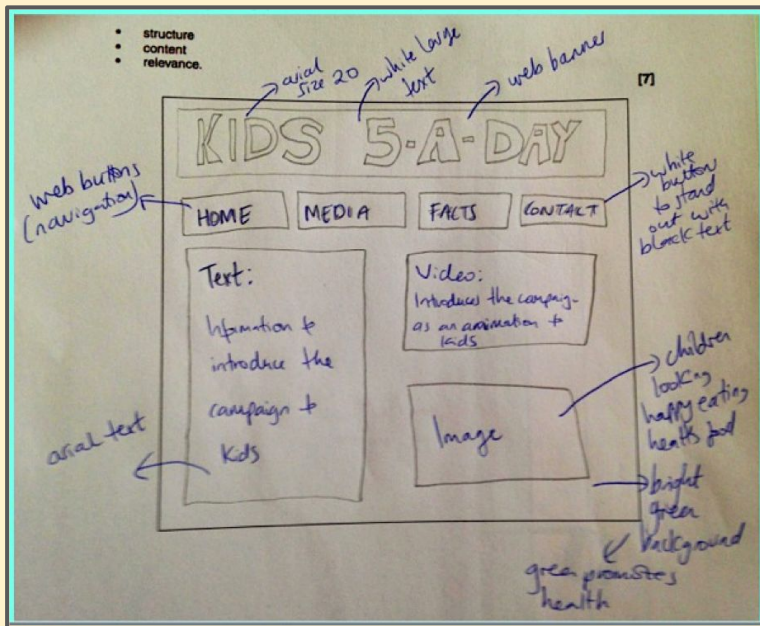 • structure
• content
• relevance.
[7]
arial
size 20
white large
text
web banner
KIDS 5-A-DAY
web buttons
(navigation)
HOME
MEDIA
FACTS
CONTACT
white
button
to stand
out with
black text
Text:
Information to
introduce the
campaign to
kids
arial text
Video:
Introduces the campaig-
as an animation to
kids
Image
children
looking
happy eating
food
bright
green
background
green promotes
health